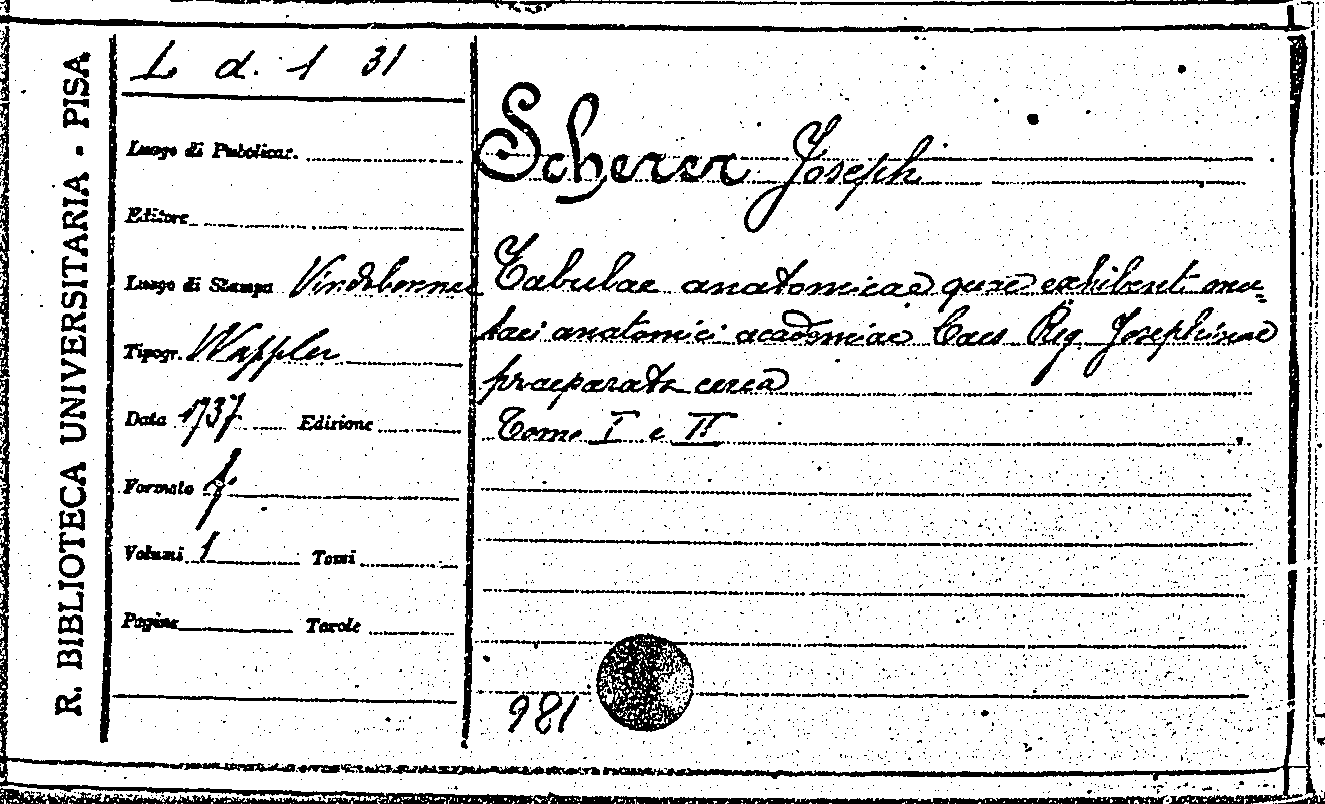 R. BIBLIOTECA UNIVERSITARIA - PISA
L d. 1 31
Luogo di Pubblicaz.
Editore
Luogo di Stampa Vindobonnae
Tipogr. Wappler
Data 1737 Edizione
Formato f.
Volumi 1 Tomi
Pagine Tavole
Scherer Joseph
Tabulae anatomicae quae exhibent mu=
saei anatomici academiae Caes Reg. Josephinae
praeparata cerea
Tomo I e II
981